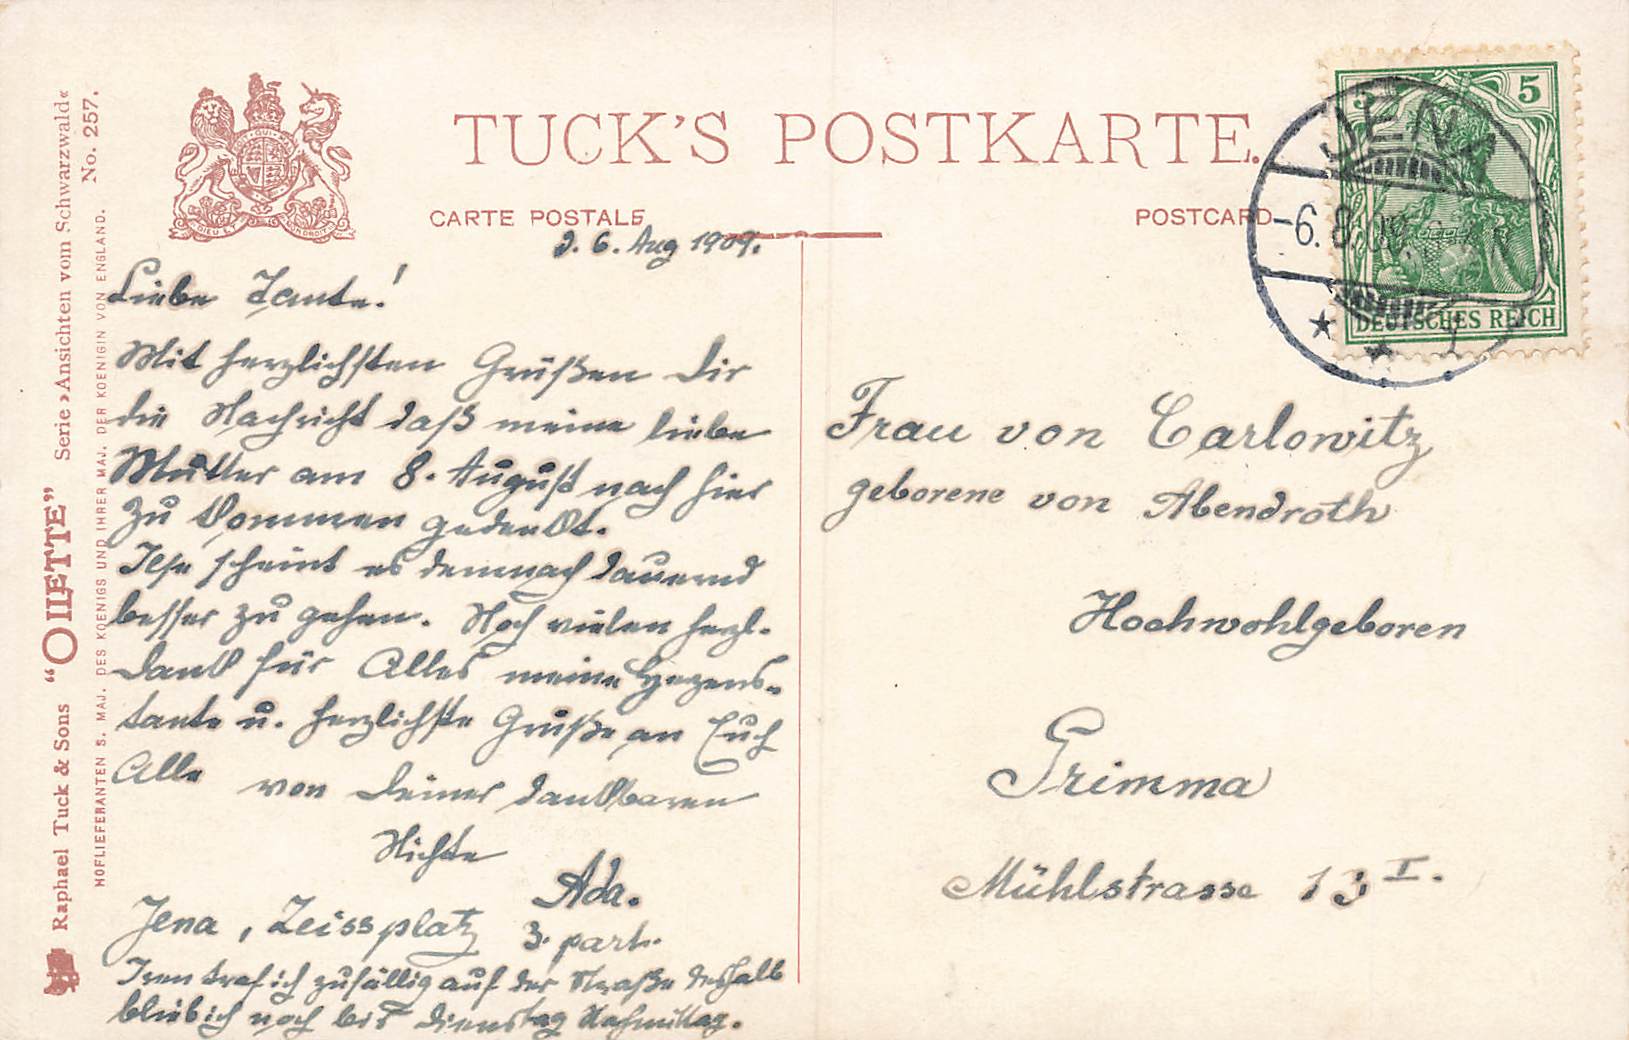 TUCK'S POSTKARTE.
CARTE POSTALE
POSTCARD
Raphael Tuck & Sons "OILETTE" Serie »Ansichten vom Schwarzwald«
No. 257.
HOFLIEFERANTEN S. MAJ. DES KOENIGS UND IHRER MAJ. DER KOENIGIN VON ENGLAND.
5
DEUTSCHES REICH
JENA
-6.8.09
d. 6. Aug 1909.
Liebe Tante!
Mit herzlichsten Grüßen Dir
die Nachricht daß meine liebe
Mutter am 8. August nach hier
zu kommen gedenkt.
Ilse scheint es demnach dauernd
besser zu gehen. Noch vielen herzl.
Dank für Alles meine Herzens-
tante u. herzlichste Grüße an Euch
Alle von Deiner dankbaren
Nichte
Ada.
Jena, Zeissplatz 3. part.
traf ich zufällig auf der Straße deshalb
blieb ich noch bis Dienstag Nachmittag.
Frau von Carlowitz
geborene von Abendroth
Hochwohlgeboren
Grimma
Mühlstrasse 13 I.